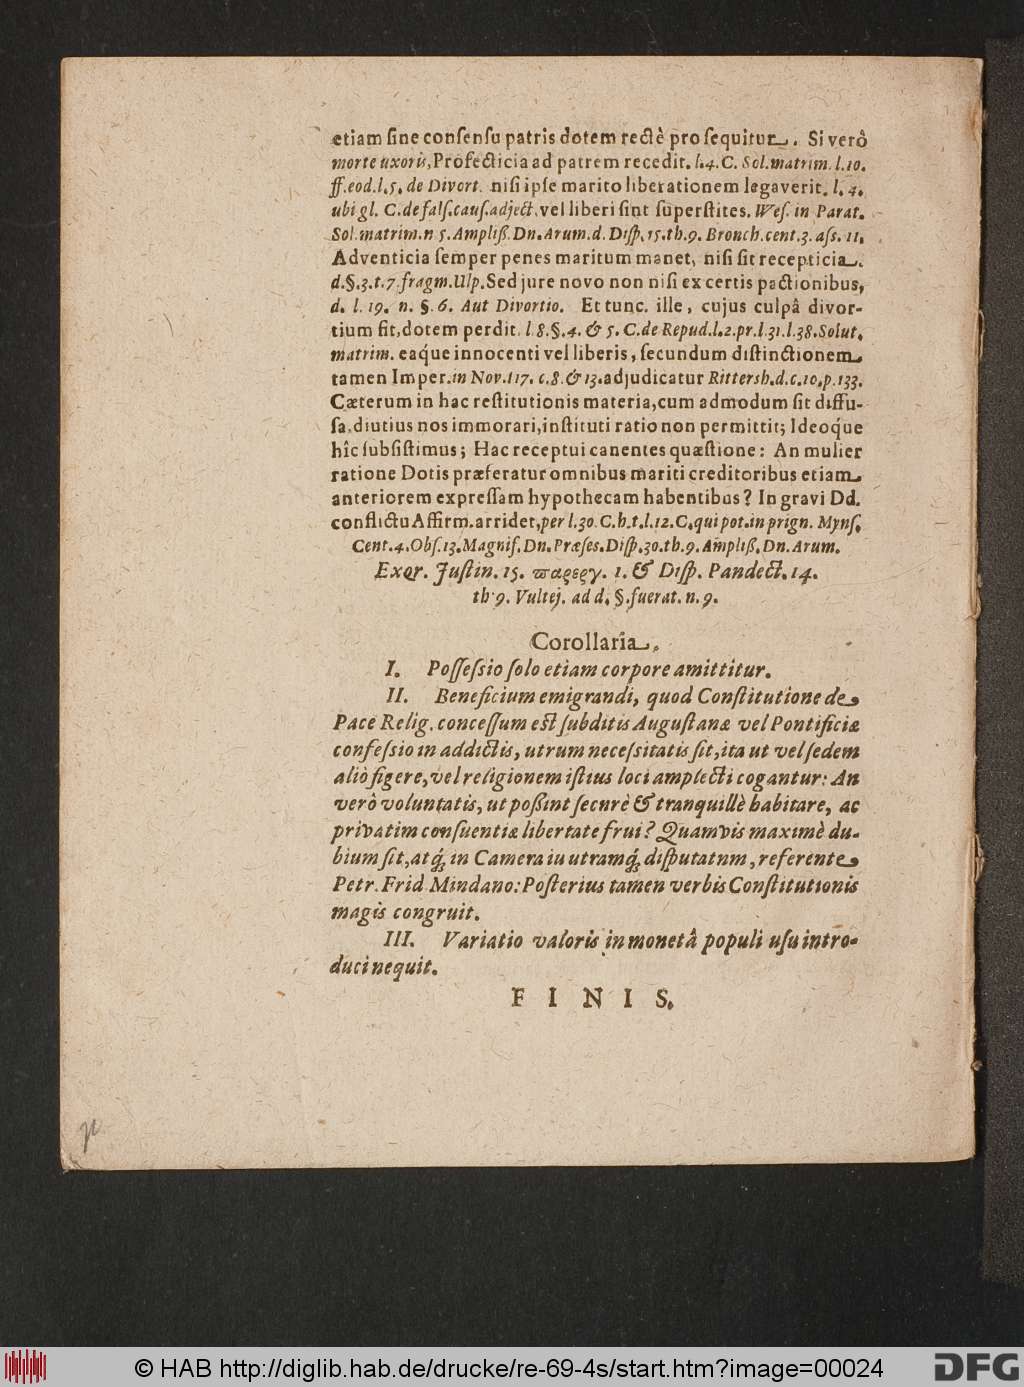 etiam ſine conſenſu patris dotem rectè proſequitur. Si verò
morte uxoris, Profecticia ad patrem recedit. l.4. C. Sol. matrim. l.10.
ff. eod. l.5. de Divort. niſi ipſe marito liberationem legaverit. l. 4.
ubi gl. C. de falſ. cauſ. adject. vel liberi ſint ſuperſtites. Weſ. in Parat.
Sol. matrim. n 5. Ampliß. Dn. Arum. d. Diſp. 15. th. 9. Bronch. cent. 3. aſſ. 11.
Adventicia ſemper penes maritum manet, niſi ſit recepticia.
d. §. 3. t. 7 fragm. Ulp. Sed jure novo non niſi ex certis pactionibus,
d. l. 19. n. §. 6. Aut Divortio. Et tunc. ille, cujus culpâ divor-
tium fit, dotem perdit. l 8. §. 4. & 5. C. de Repud. l. 2. pr. l. 31. l. 38. Solut.
matrim. eaq́ue innocenti vel liberis, ſecundum diſtinctionem
tamen Imper. in Nov. 117. c. 8. & 13. adjudicatur Rittersh. d. c. 10. p. 133.
Cæterum in hac reſtitutionis materia, cum admodum ſit diffu-
ſa, diutius nos immorari, inſtituti ratio non permittit; Ideoq́ue
hîc ſubſiſtimus; Hac receptui canentes quæſtione: An mulier
ratione Dotis præferatur omnibus mariti creditoribus etiam
anteriorem expreſſam hypothecam habentibus? In gravi Dd.
conflictu Affirm. arridet, per l. 30. C. h. t. l. 12. C. qui pot. in prign. Mynſ.
Cent. 4. Obſ. 13. Magnif. Dn. Præſes. Diſp. 30. th. 9. Ampliß. Dn. Arum.
Exer. Juſtin. 15. παρεργ. 1. & Diſp. Pandect. 14.
th 9. Vultej. ad d. §. fuerat. n. 9.
Corollaria.
I. Poſſeſsio ſolo etiam corpore amittitur.
II. Beneficium emigrandi, quod Conſtitutione de
Pace Relig. conceſſum eſt ſubditis Auguſtanæ vel Pontificiæ
confeſsio in addictis, utrum neceſsitatis ſit, ita ut vel ſedem
aliò figere, vel religionem iſtius loci amplecti cogantur: An
verò voluntatis, ut poßint ſecurè & tranquillè habitare, ac
privatim conſuentiæ libertate frui? Quamvis maximè du-
bium ſit, atq́; in Camera iu utramq́; diſputatnm, referente
Petr. Frid. Mindano: Poſterius tamen verbis Conſtitutionis
magis congruit.
III. Variatio valoris in monetâ populi uſu intro-
duci nequit.
FINIS.
© HAB http://diglib.hab.de/drucke/re-69-4s/start.htm?image=00024
DFG